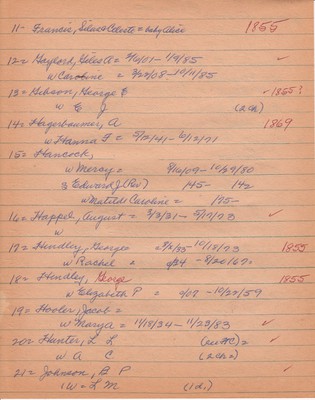 11- Francis, Silence Celeste = baby Alice 1855
12= Gaylord, Giles A= 5/6/01- 1/9/85 ✓
w Caroline = 3/22/08-10/11/85
13= Gibson, George E ✓1855?
w E J (2ch)
14= Hagerbaumer, A 1869
w Hanna F = 5/12/41- 6/12/71
15= Hancock,
w Mercy = 8/16/09-10/29/80
Edward J (Rev) 145- 192
w Matilda Caroline = 175-
16= Happel, August = 3/3/31- 9/17/73 ✓
w
17= Hendley, George =9/6/55 10/18/73 1855
w Rachel = 624 - 8/20/67.
18= Hendley, George 1855
w Elizabeth P = 2/07 - 10/22/59
19= Hooler, Jacob =
w Marya = 11/18/34-11/23/83 ✓
20= Hunter, L L
w A C (2ch=)
21= Johnson, B P ✓
1w=L M (1d.)